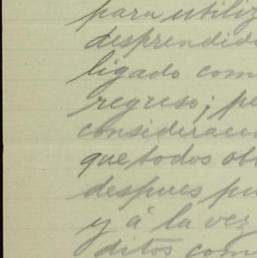 para utiliz
desprendid
ligado com
regreso; pe
consideraci
que todos ob
despues pu
y á la vez
ditos com